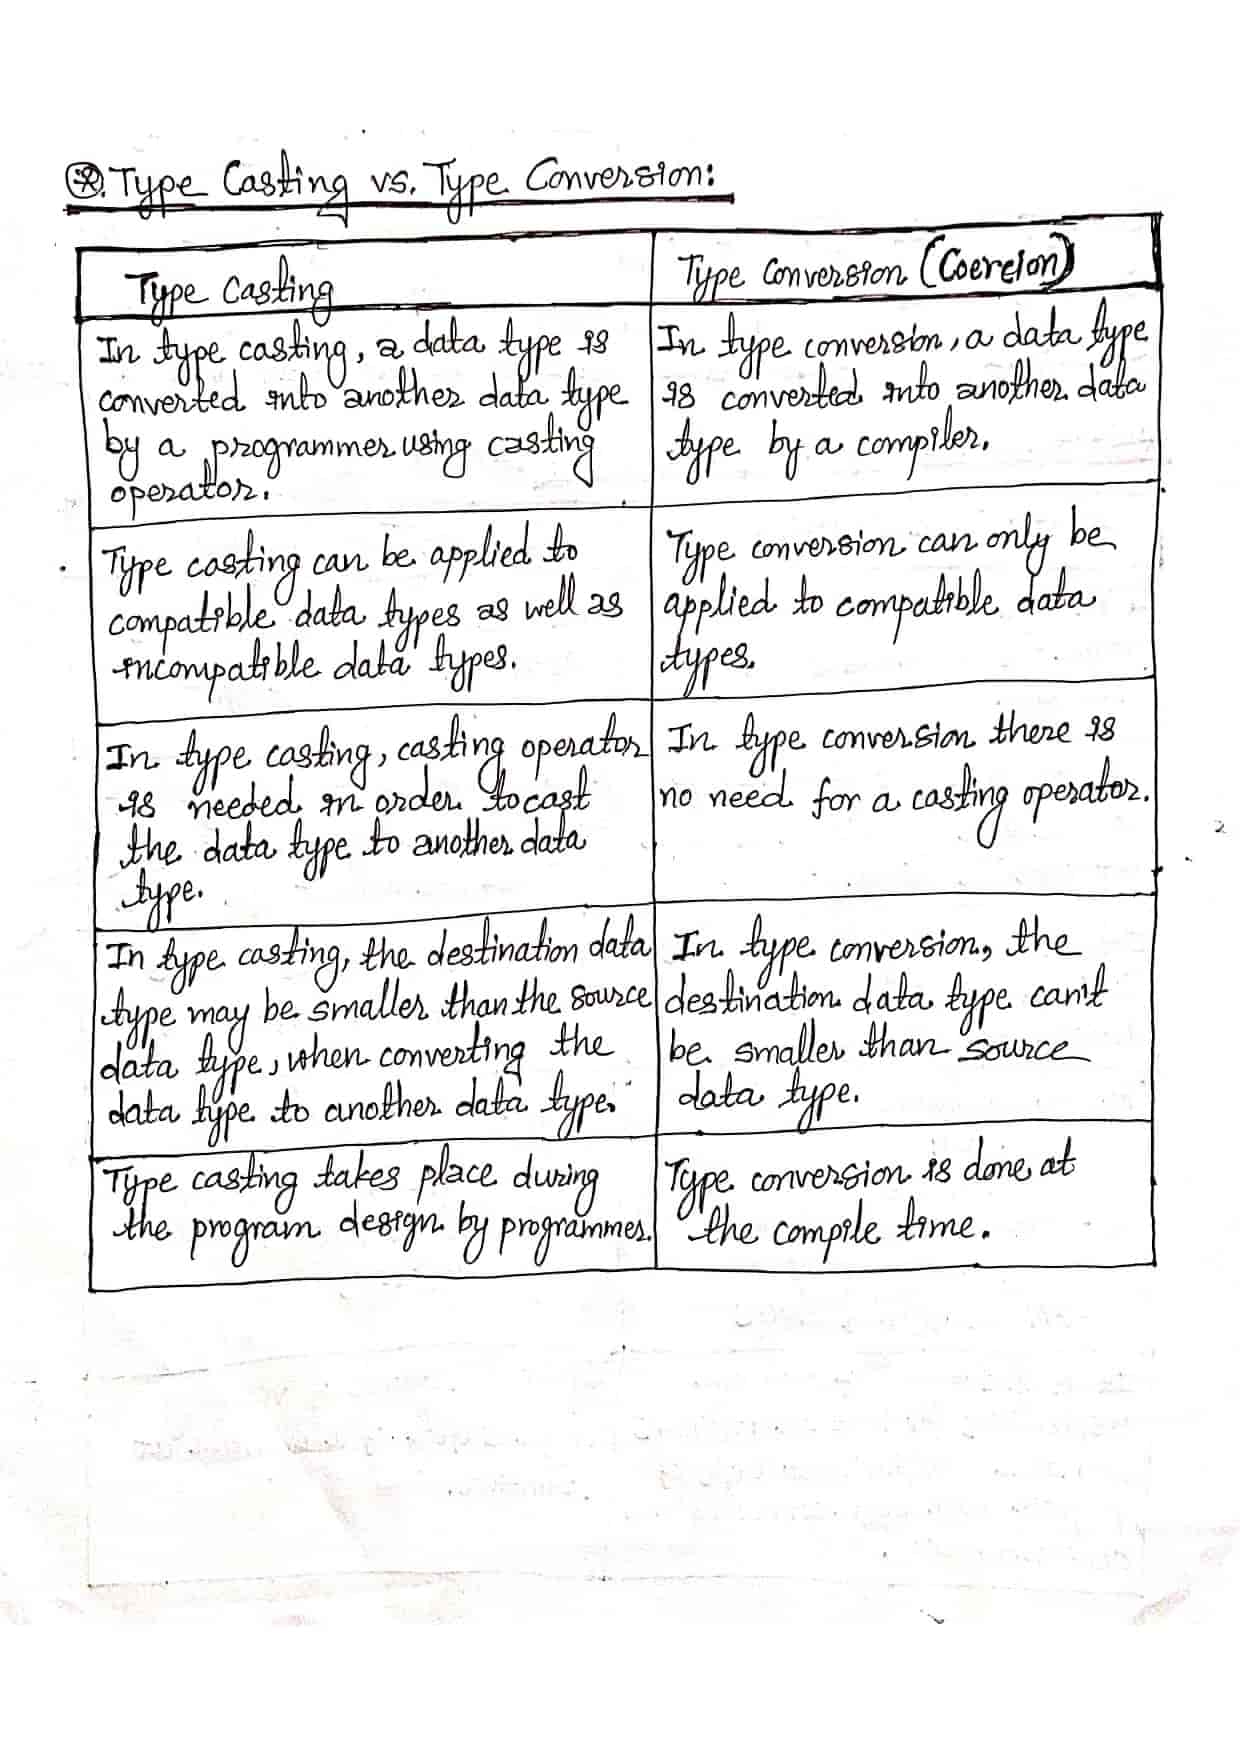 ⊛. Type Casting vs. Type Conversion:
Type Casting
Type Conversion (Coercion)
In type casting, a data type is
converted into another data type
by a programmer using casting
operator.
In type conversion, a data type
is converted into another data
type by a compiler.
Type casting can be applied to
compatible data types as well as
incompatible data types.
Type conversion can only be
applied to compatible data
types.
In type casting, casting operator
is needed in order to cast
the data type to another data
type.
In type conversion there is
no need for a casting operator.
In type casting, the destination data
type may be smaller than the source
data type, when converting the
data type to another data type.
In type conversion, the
destination data type can't
be smaller than source
data type.
Type casting takes place during
the program design by programmer.
Type conversion is done at
the compile time.